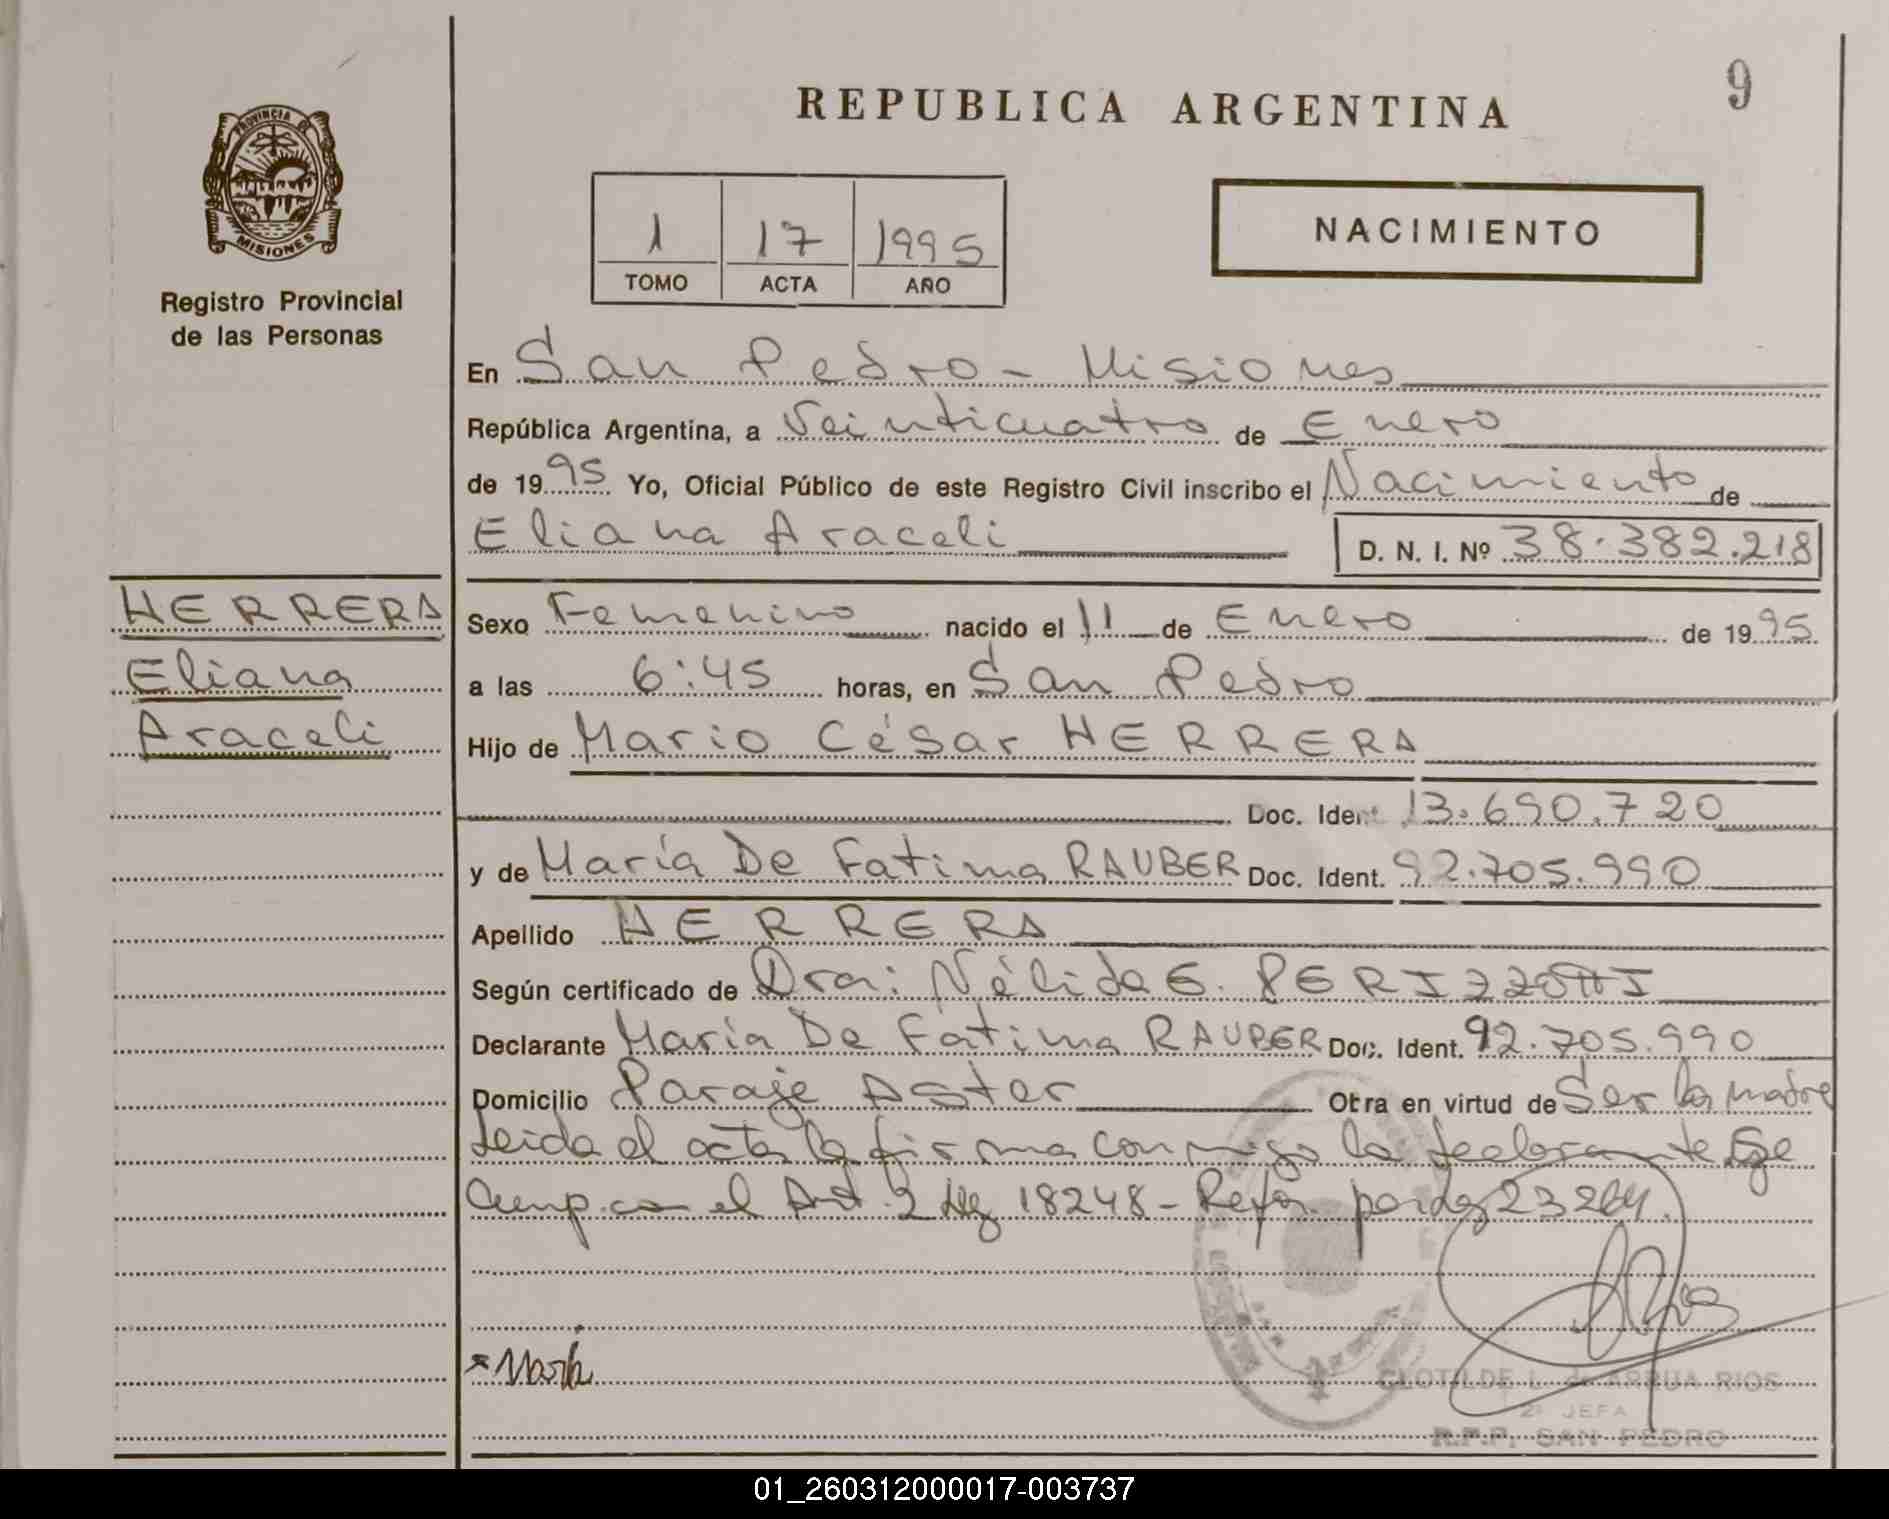 9
REPUBLICA ARGENTINA
PROVINCIA DE
MISIONES
Registro Provincial
de las Personas
1 17 1995
TOMO ACTA AÑO
NACIMIENTO
En San Pedro - Misiones
República Argentina, a Veinticuatro de Enero
de 1995 Yo, Oficial Público de este Registro Civil inscribo el Nacimiento de
Eliana Araceli D. N. I. Nº 38.382.218
HERRERA
Eliana
Araceli
Sexo Femenino nacido el 11 de Enero de 1995
a las 6:45 horas, en San Pedro
Hijo de Mario César HERRERA
Doc. Ident. 13.690.720
y de María De Fatima RAUBER Doc. Ident. 92.705.990
Apellido HERRERA
Según certificado de Dra: Nélida E. PERIZZOTTI
Declarante María De Fatima RAUBER Doc. Ident. 92.705.990
Domicilio Paraje Aster Otra en virtud de Ser la madre
Leida el acta la firma conmigo la declarante Se
Cump. con el Art. 2 Ley 18248 - Refor. por Ley 23264.
CLOTILDE L. de ARRUA RIOS
2º JEFA
R.P.P. SAN PEDRO
01_260312000017-003737